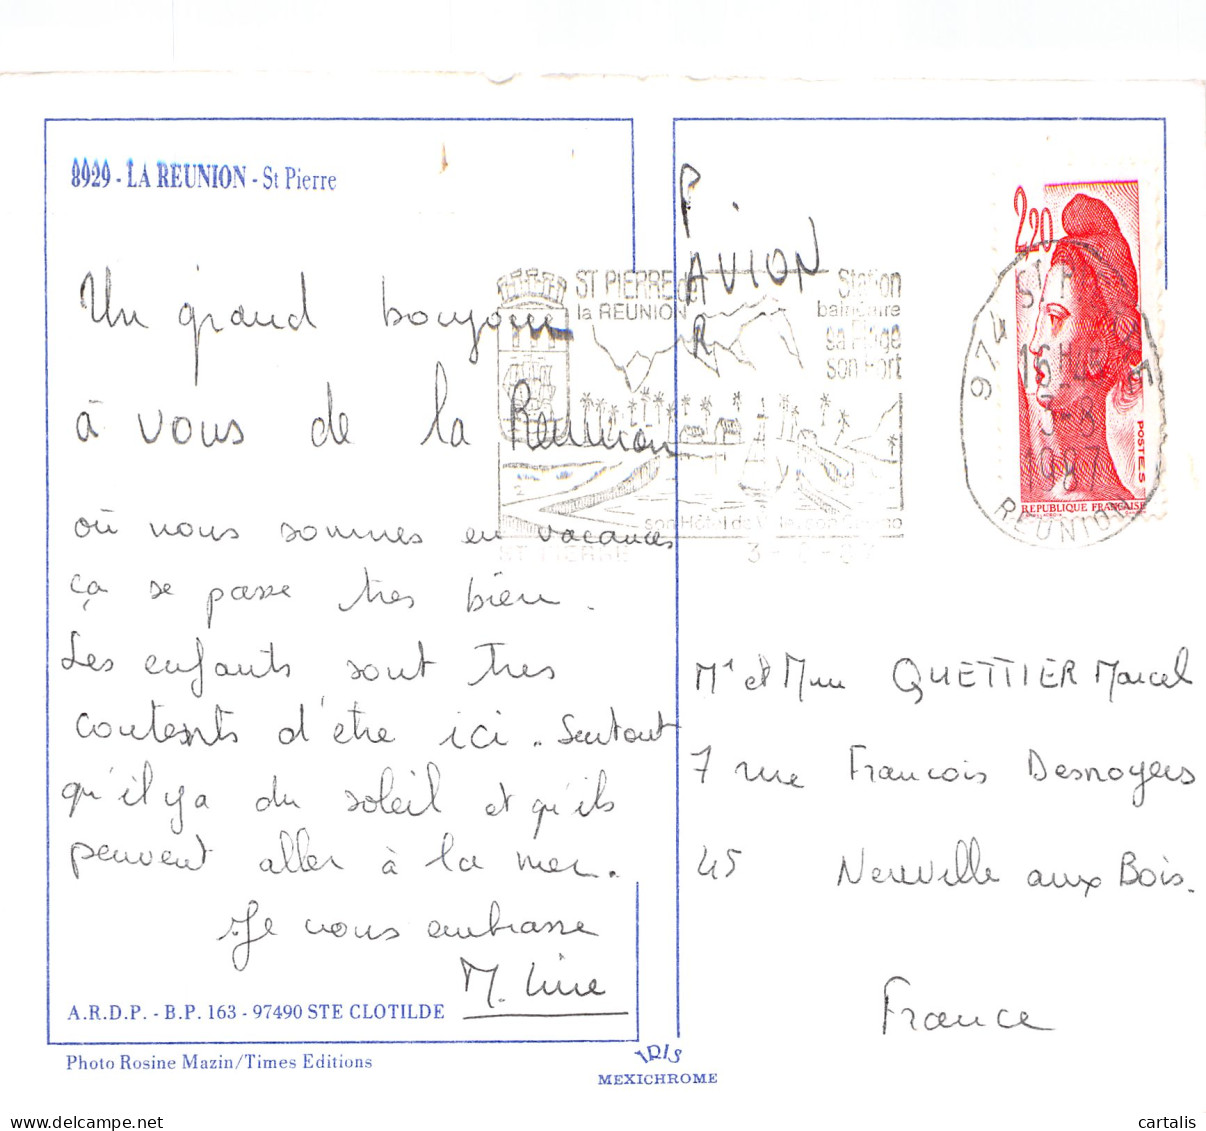 8929 - LA REUNION - St Pierre
Un grand bonjour
à vous de la Réunion
où nous sommes en vacances
ça se passe tres bien.
Les enfants sont tres
contents d'être ici. Surtout
qu'il y a du soleil et qu'ils
peuvent aller à la mer.
Je vous embrasse
M. Line
A.R.D.P. - B.P. 163 - 97490 STE CLOTILDE
Photo Rosine Mazin/Times Editions
IRIS
MEXICHROME
PAR AVION
ST PIERRE de
la REUNION
Station
balnéaire
sa Plage
son Port
son Hôtel de Ville, son Casino
ST PIERRE
2,20
POSTES
REPUBLIQUE FRANÇAISE
974 ST PIERRE
16H
3-8
1987
REUNION
Mr et Mme QUETTIER Marcel
7 rue Francois Desnoyers
45 Neuville aux Bois.
France
cartalis